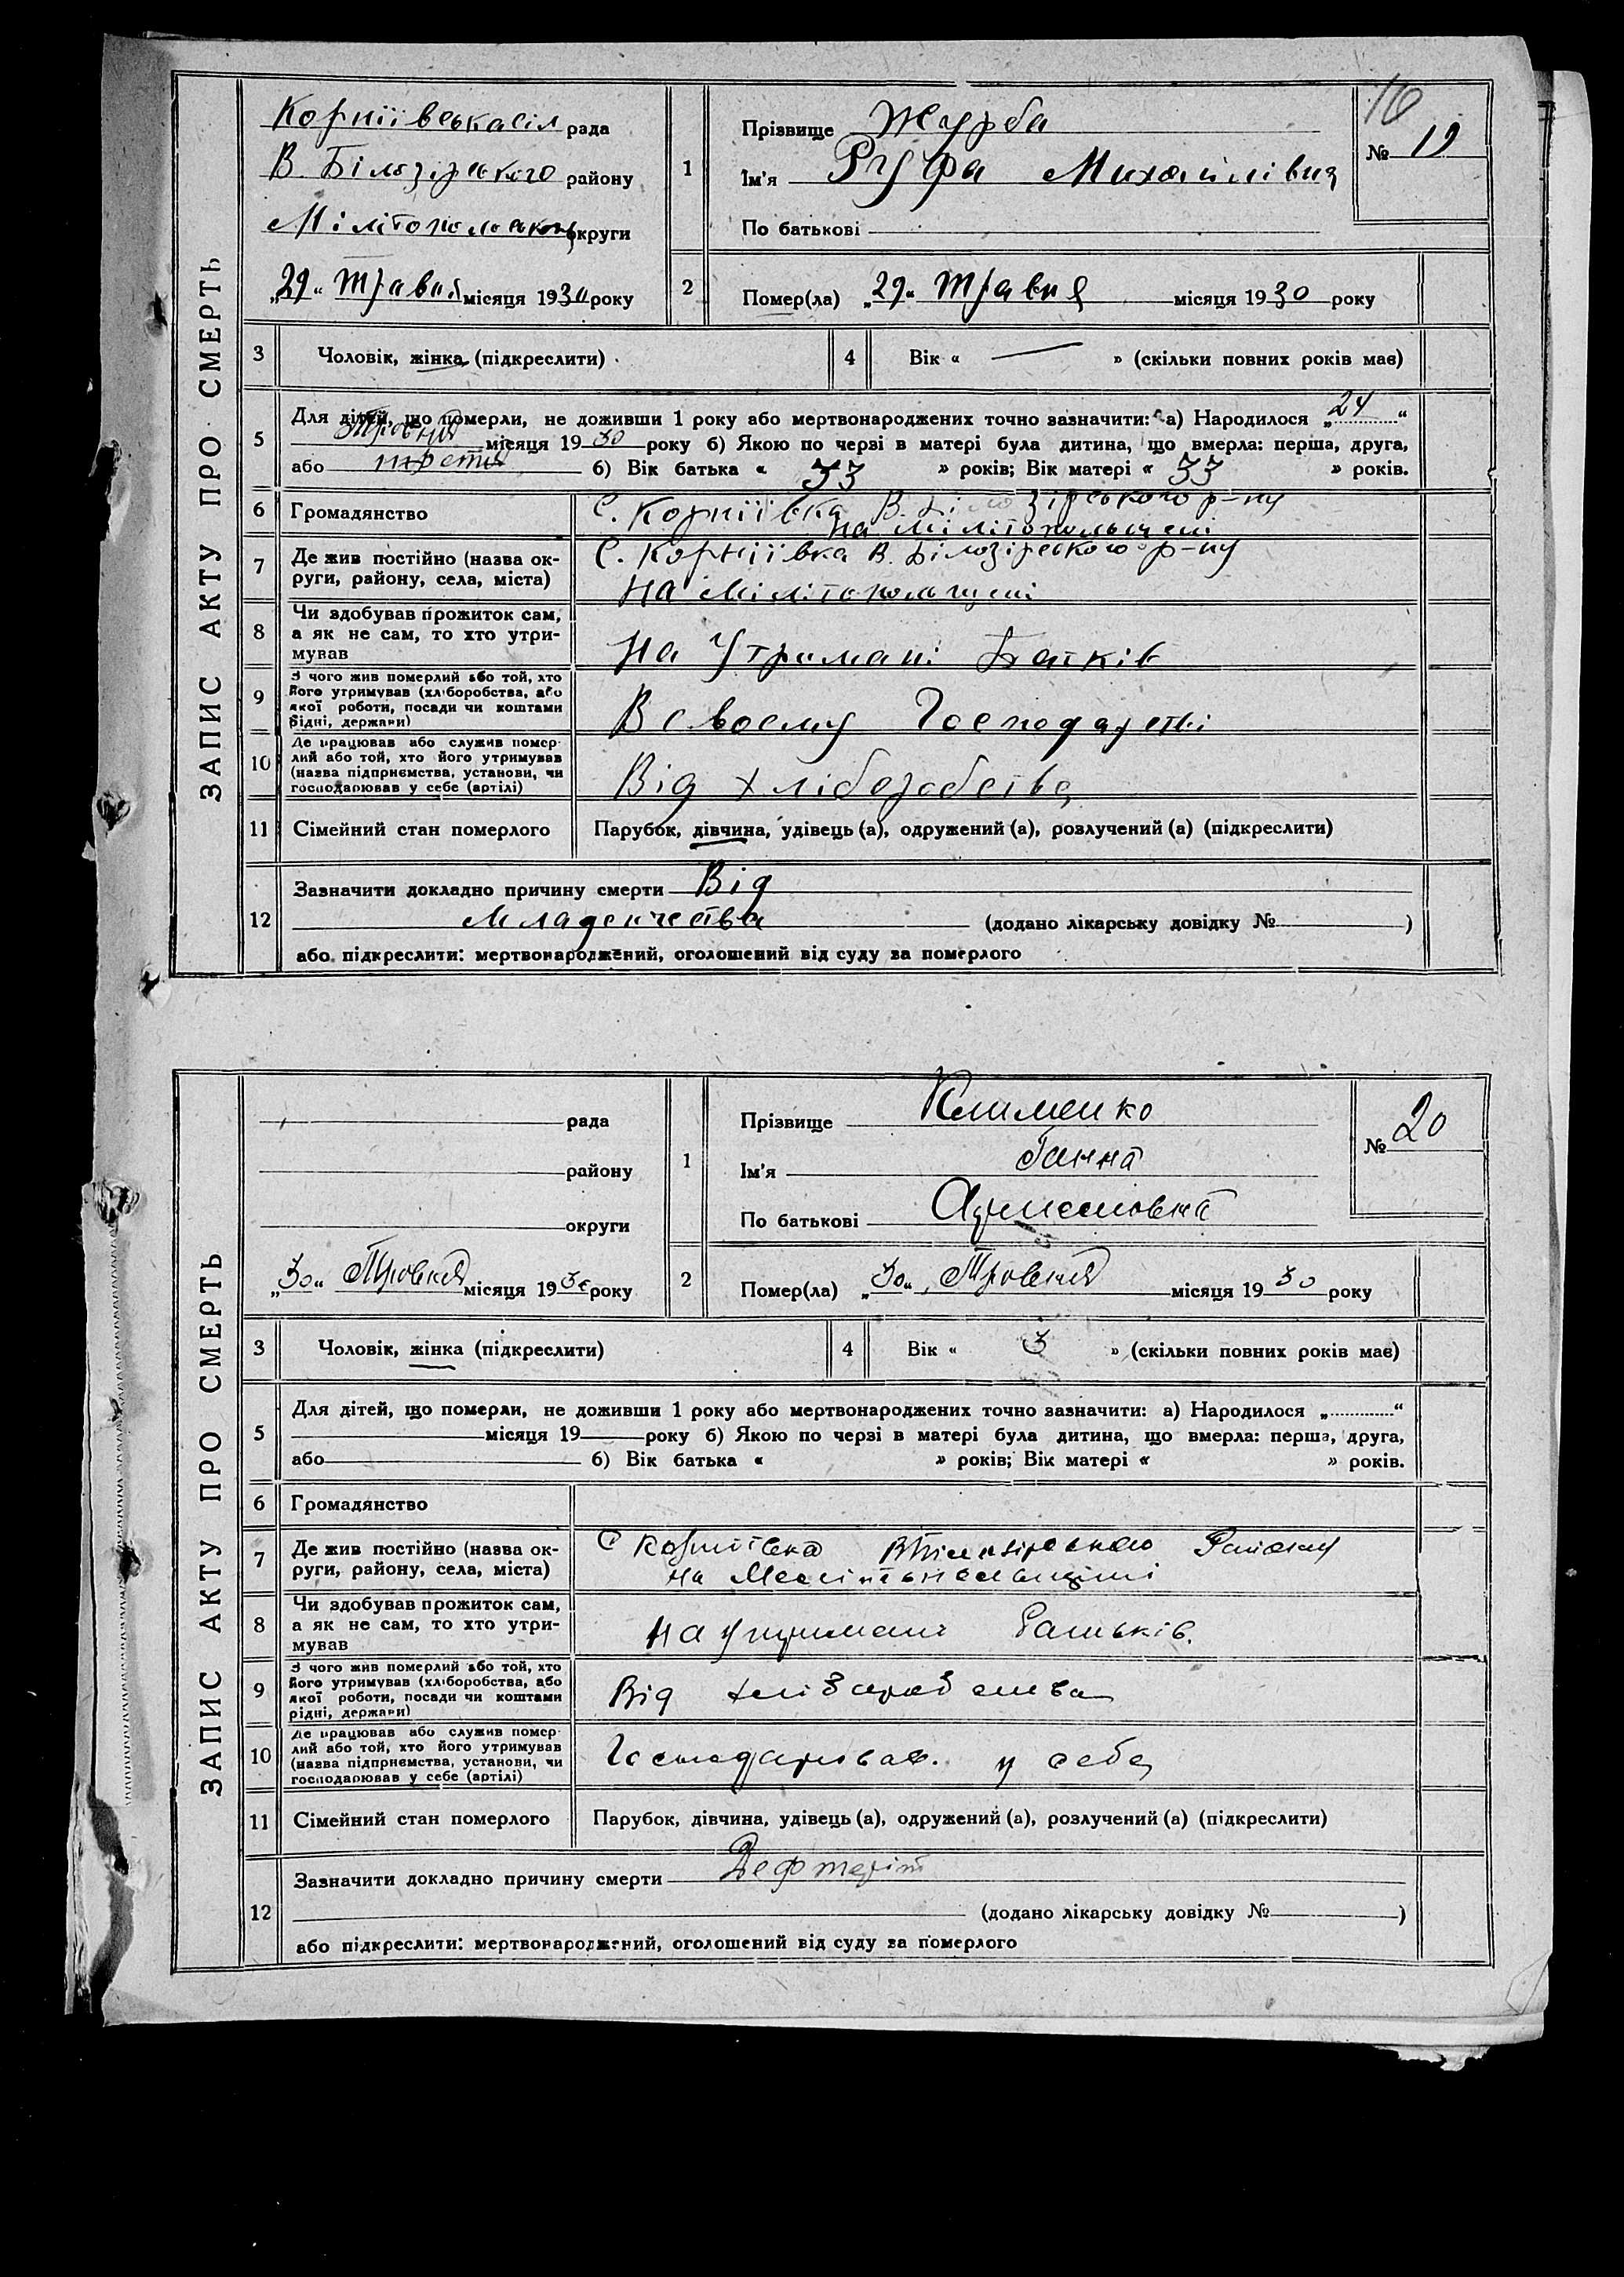 16
Корніївська сіл рада
В. Білозірського району
Мілітопольської округи
„29“ Травня місяця 1930 року
1
Прізвище Журба
Ім'я Руфа Михайлівна
По батькові
№ 19
2
Помер(ла) „29“ Травня місяця 1930 року
ЗАПИС АКТУ ПРО СМЕРТЬ
3 Чоловік, жінка (підкреслити)
4 Вік « — » (скільки повних років має)
5 Для дітей, що померли, не доживши 1 року або мертвонароджених точно зазначити: а) Народилося „24“
Травня місяця 1930 року б) Якою по черзі в матері була дитина, що вмерла: перша, друга,
або третя б) Вік батька « 33 » років; Вік матері « 33 » років.
6 Громадянство С. Корніївка В. Білозірського р-ну
на Мілітопольщені
7 Де жив постійно (назва ок-
руги, району, села, міста)
С. Корніївка В. Білозірського р-ну
на Мілітопольщені
8 Чи здобував прожиток сам,
а як не сам, то хто утри-
мував
На Утримані Батків
9 З чого жив померлий або той, хто
його утримував (хліборобства, або
якої роботи, посади чи коштами
рідні, держави)
В своєму Господарстві
10 Де працював або служив помер-
лий або той, хто його утримував
(назва підприємства, установи, чи
господарював у себе (артілі)
Від хліборобства
11 Сімейний стан померлого Парубок, дівчина, удівець (а), одружений (а), розлучений (а) (підкреслити)
12 Зазначити докладно причину смерти Від
младенчества (додано лікарську довідку № )
або підкреслити: мертвонароджений, оголошений від суду за померлого
рада
району
округи
„30“ Травня місяця 1930 року
1
Прізвище Клименко
Ім'я Ганна
По батькові
№ 20
2
Помер(ла) „30“ Травня місяця 1930 року
ЗАПИС АКТУ ПРО СМЕРТЬ
3 Чоловік, жінка (підкреслити)
4 Вік « 3 » (скільки повних років має)
5 Для дітей, що померли, не доживши 1 року або мертвонароджених точно зазначити: а) Народилося „ “
місяця 19 року б) Якою по черзі в матері була дитина, що вмерла: перша, друга,
або б) Вік батька « » років; Вік матері « » років.
6 Громадянство
7 Де жив постійно (назва ок-
руги, району, села, міста)
С Корніївка ВБілозірського Району
на
8 Чи здобував прожиток сам,
а як не сам, то хто утри-
мував
на утримані батьків.
9 З чого жив померлий або той, хто
його утримував (хліборобства, або
якої роботи, посади чи коштами
рідні, держави)
Від хліборобства
10 Де працював або служив помер-
лий або той, хто його утримував
(назва підприємства, установи, чи
господарював у себе (артілі)
Господарював. у себе
11 Сімейний стан померлого Парубок, дівчина, удівець (а), одружений (а), розлучений (а) (підкреслити)
12 Зазначити докладно причину смерти Дефтеріт
(додано лікарську довідку № )
або підкреслити: мертвонароджений, оголошений від суду за померлого